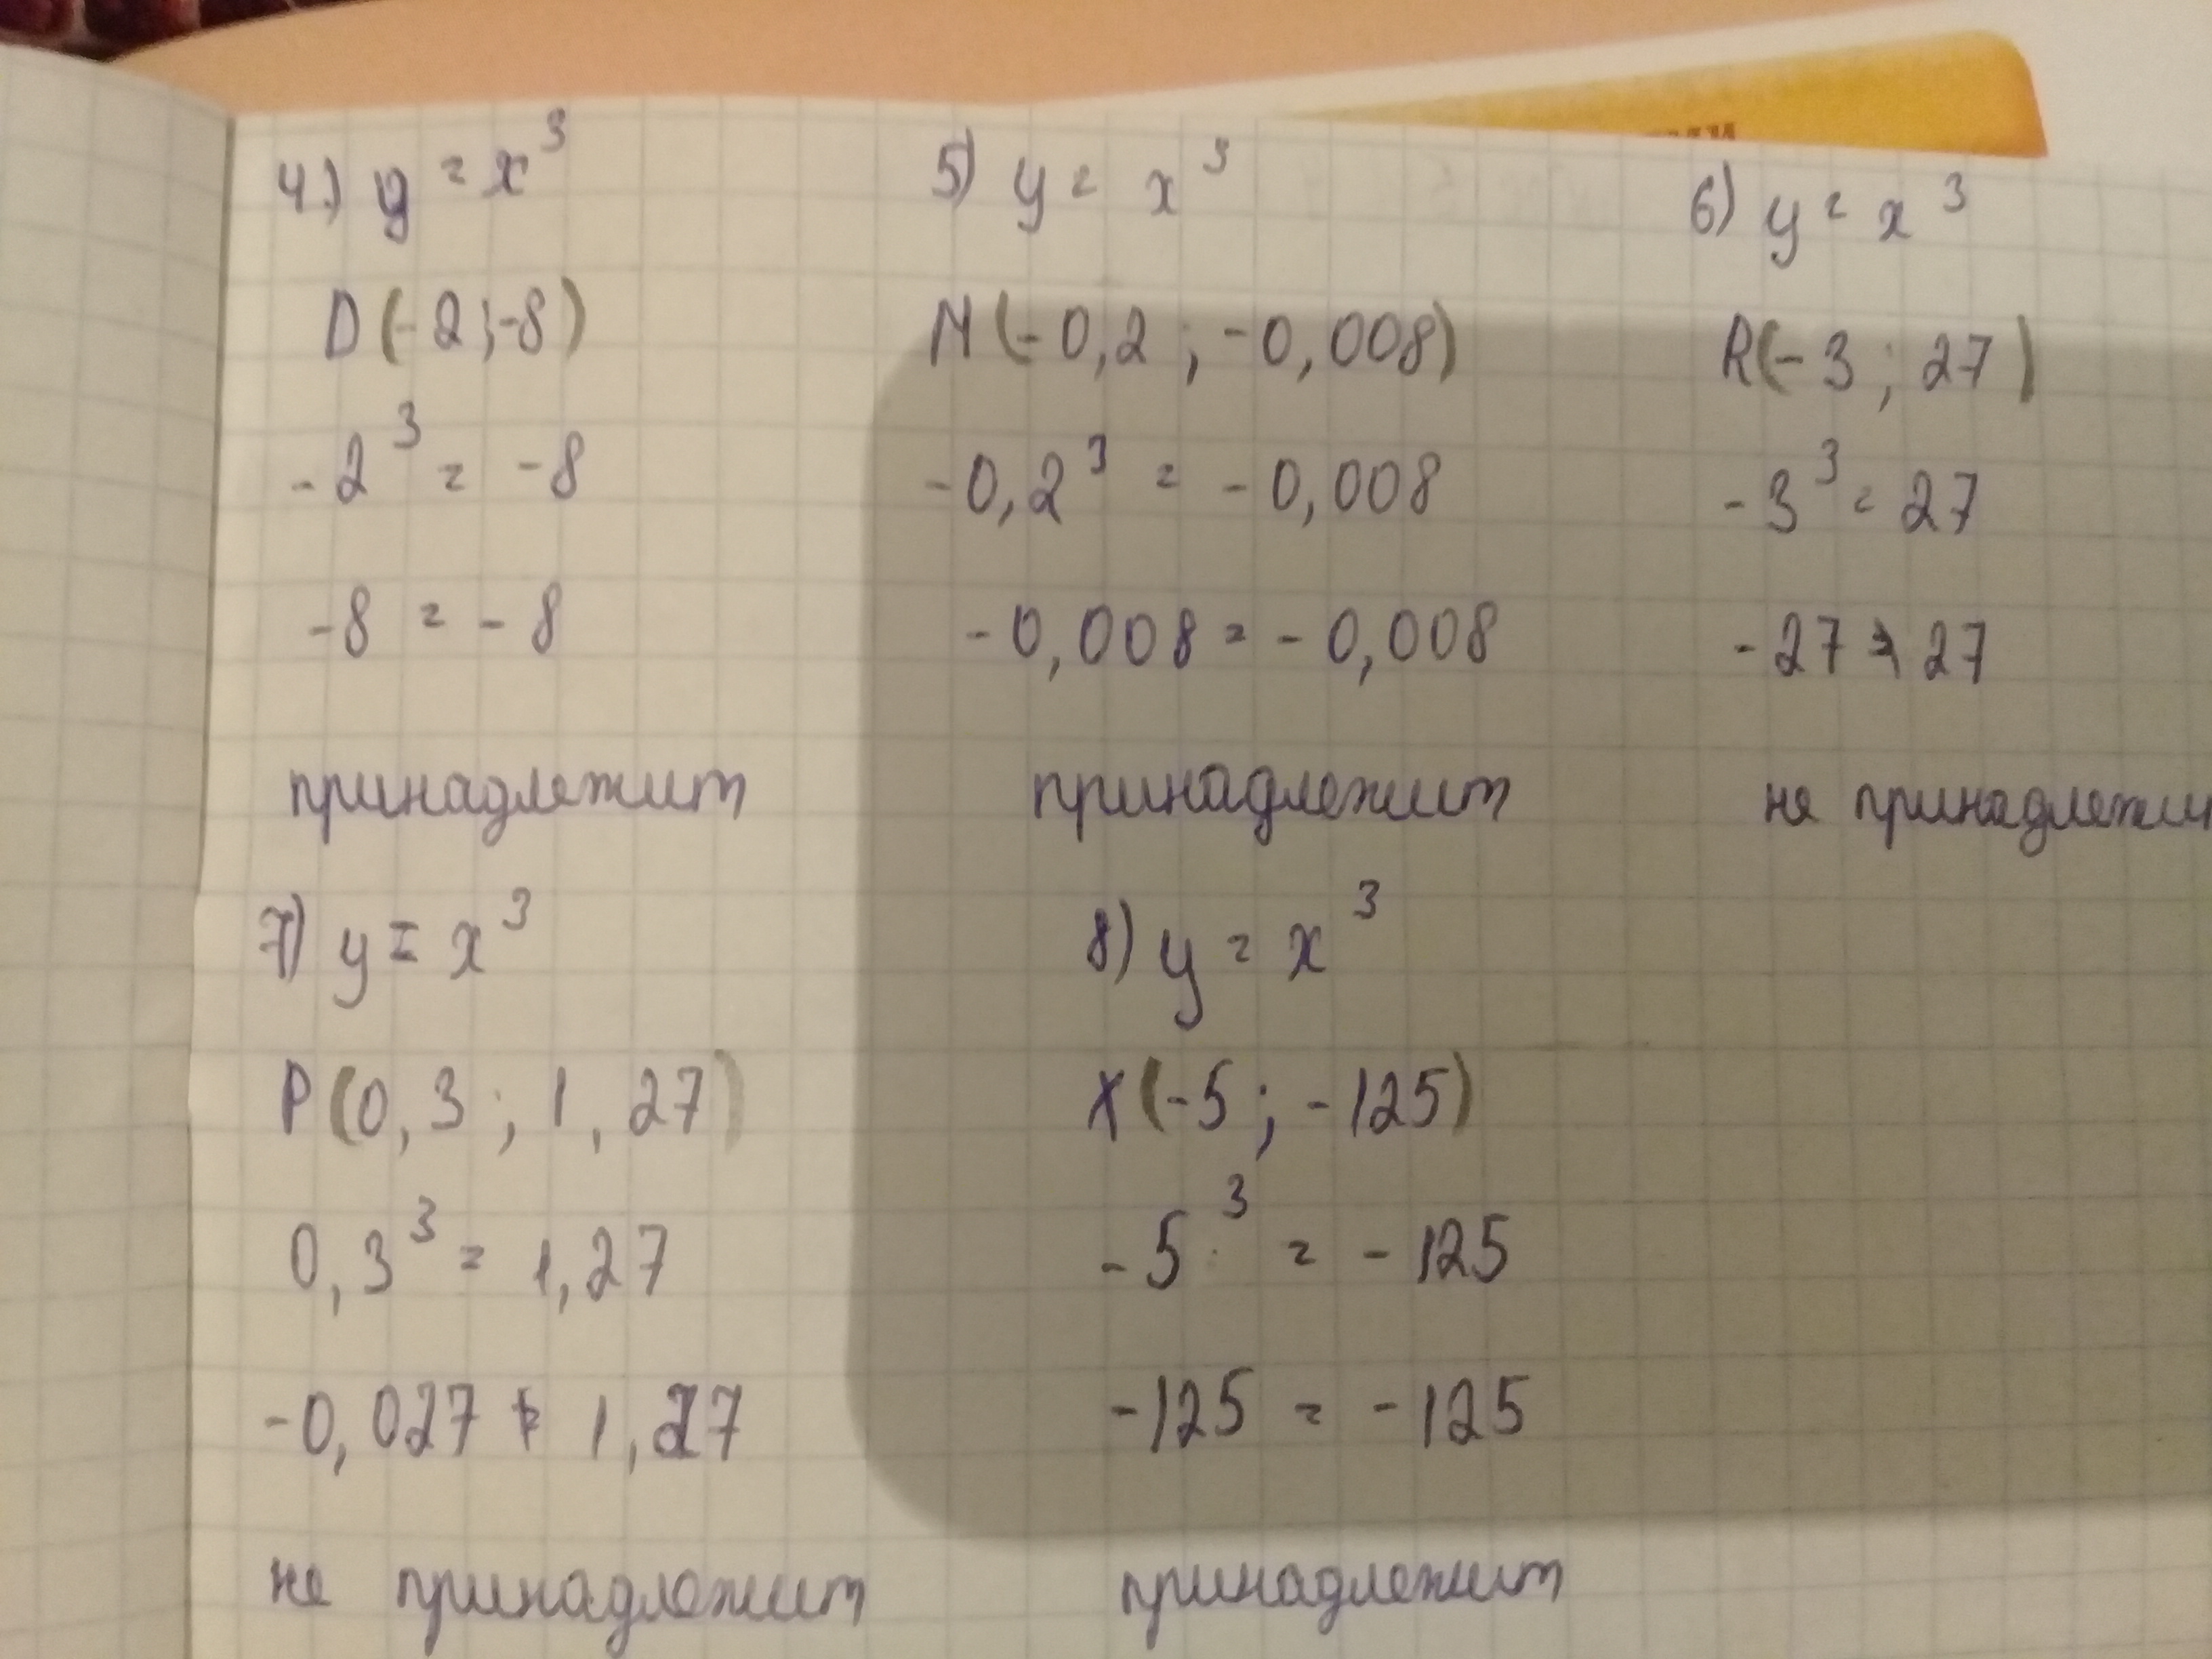 4.) y = x³
D(-2;-8)
-2³ = -8
-8 = -8
принадлежит
5) y = x³
N(-0,2; -0,008)
-0,2³ = -0,008
-0,008 = -0,008
принадлежит
6) y = x³
R(-3; 27)
-3³ = 27
-27 ≠ 27
не принадлежи
7) y = x³
P(0,3; 1,27)
0,3³ = 1,27
-0,027 ≠ 1,27
не принадлежит
8) y = x³
X(-5; -125)
-5³ = -125
-125 = -125
принадлежит